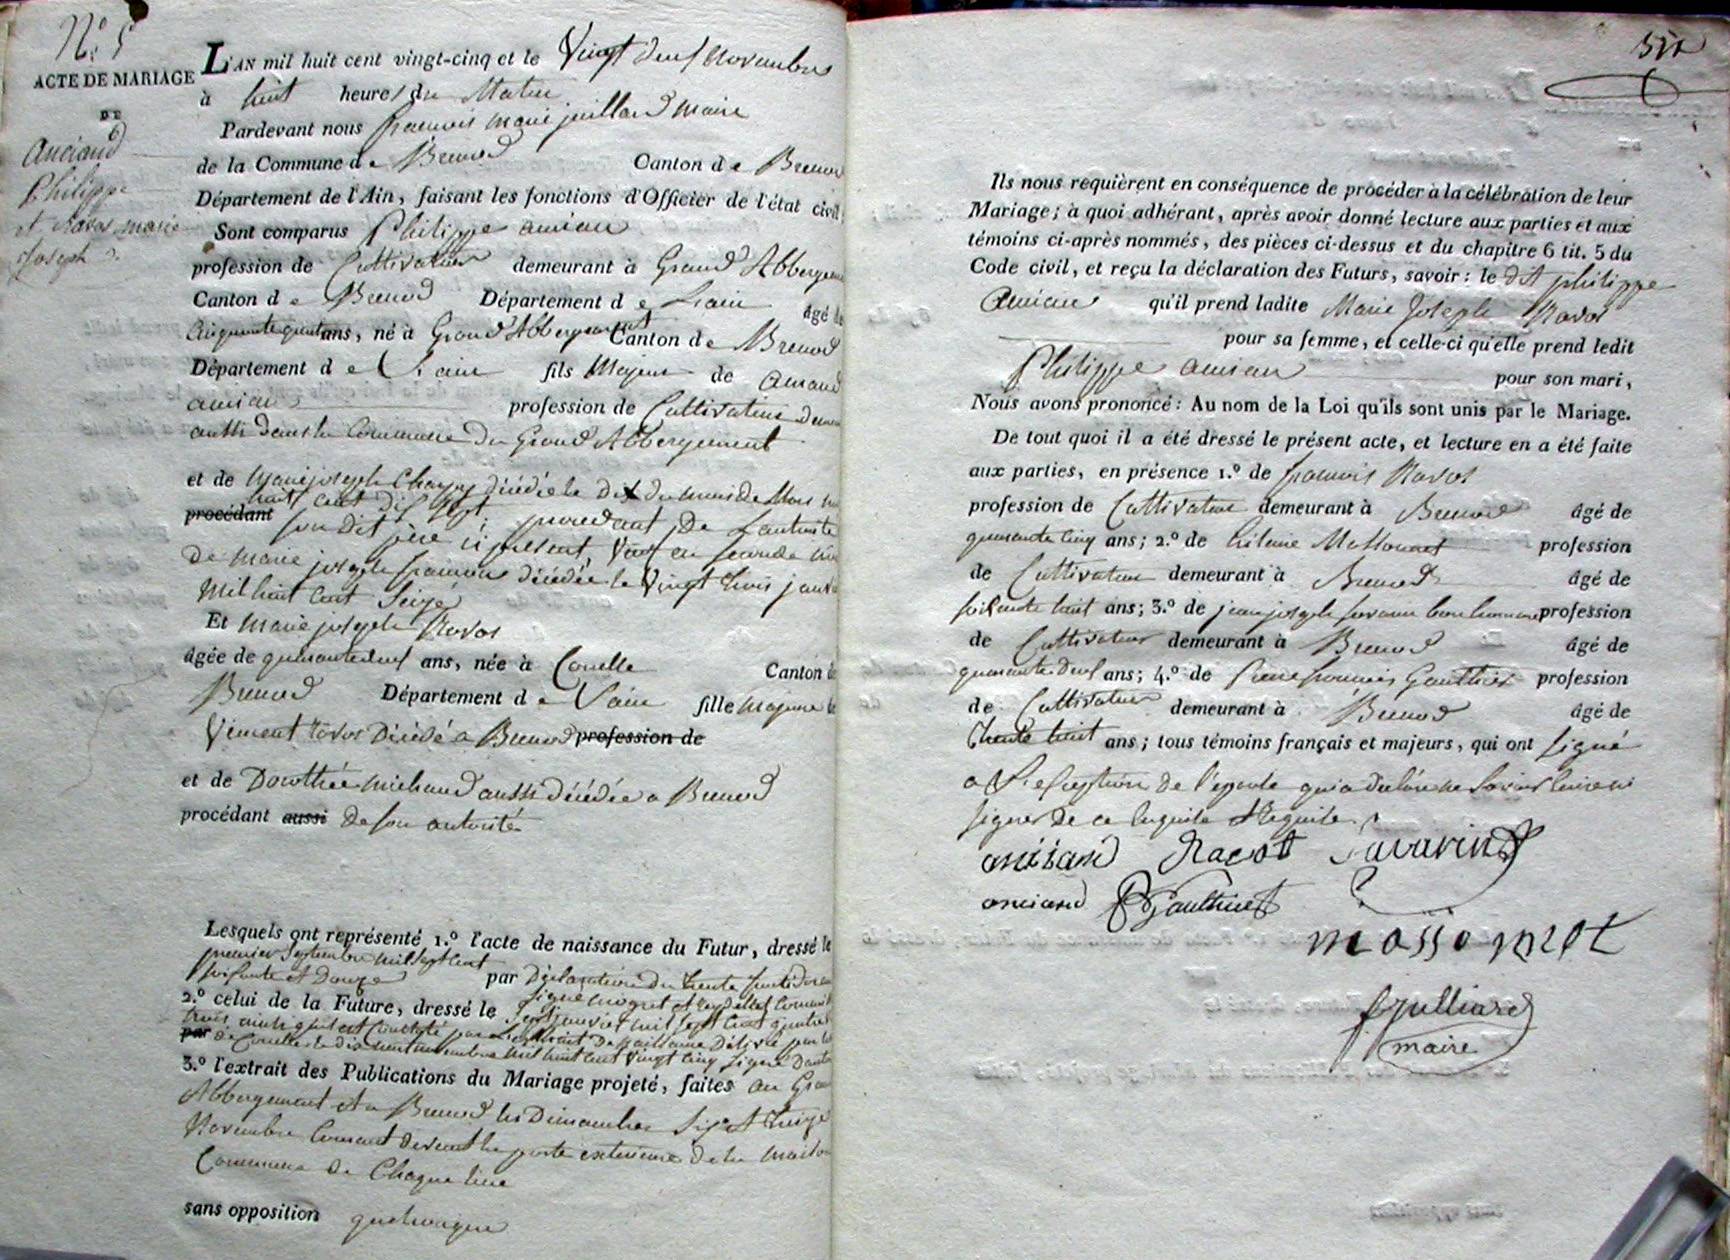 N.º 5
ACTE DE MARIAGE
DE
Anciand
Philippe
et Ravos marie
Joseph
L'AN mil huit cent vingt-cinq et le Vingt deux Novembre
à huit heures du Matin
Pardevant nous francois marie juillard maire
de la Commune de Brenod Canton de Brenod
Département de l'Ain, faisant les fonctions d'Officier de l'état civil
Sont comparus Philippe ancian
profession de Cultivateur demeurant à Grand Abbergement
Canton de Brenod Département de Lain âgé de
Cinquante quatre ans, né à Grand Abbergement Canton de Brenod
Département de Lain fils Majeur de
ancian profession de Cultivateur
aussi dans la Commune du Grand Abbergement
et de Marie joseph décédée le dix du mois de Mars
huit cent dix sept procédant de Lautorité
procédant son dit père ci présent, Veuf en seconde
de marie joseph francois décédée le Vingt trois
Mil huit cent Seize
Et Marie joseph Ravos
âgée de quarante deux ans, née à Corcelle Canton de
Brenod Département de Lain fille Majeure de
Vincent Ravos Décédé a Brenod profession de
et de Dorothée michaud aussi décédée a Brenod
procédant aussi de son autorité
Lesquels ont représenté 1.º l'acte de naissance du Futur, dressé le
premier Septembre mil sept cent
soixante et Douze par Déclaration du trente
2.º celui de la Future, dressé le Sept janvier mil sept cent quatre
trois ainsi quil est Constaté par Lextrait Délivré par
par de Corcelle le dix huit novembre mil huit cent Vingt Cinq Signé
3.º l'extrait des Publications du Mariage projeté, faites au Grand
Abbergement et a Brenod les Dimanches Six et treize
Novembre Courant devant la porte exterieure de la maison
Commune de Chaque lieu
sans opposition quelconque
Ils nous requièrent en conséquence de procéder à la célébration de leur
Mariage; à quoi adhérant, après avoir donné lecture aux parties et aux
témoins ci-après nommés, des pièces ci-dessus et du chapitre 6 tit. 5 du
Code civil, et reçu la déclaration des Futurs, savoir: le dit philippe
Ancian qu'il prend ladite Marie Joseph Ravos
pour sa femme, et celle-ci qu'elle prend ledit
Philippe ancian pour son mari,
Nous avons prononcé: Au nom de la Loi qu'ils sont unis par le Mariage.
De tout quoi il a été dressé le présent acte, et lecture en a été faite
aux parties, en présence 1.º de francois Ravos
profession de Cultivateur demeurant à Brenod âgé de
quarante cinq ans; 2.º de hilaire Massonnet profession
de Cultivateur demeurant à Brenod âgé de
soixante huit ans; 3.º de jean joseph savarin bonhomme profession
de Cultivateur demeurant à Brenod âgé de
quarante deux ans; 4.º de Pierre francois Gauthier profession
de Cultivateur demeurant à Brenod âgé de
Trente huit ans; tous témoins français et majeurs, qui ont signé
a Lexception de l'epouse qui a déclaré ne Savoir écrire ni
signer De ce Enquise et Requise
anciand Ravot Savarin
anciand Gauthier
massonnet
fjulliard
maire